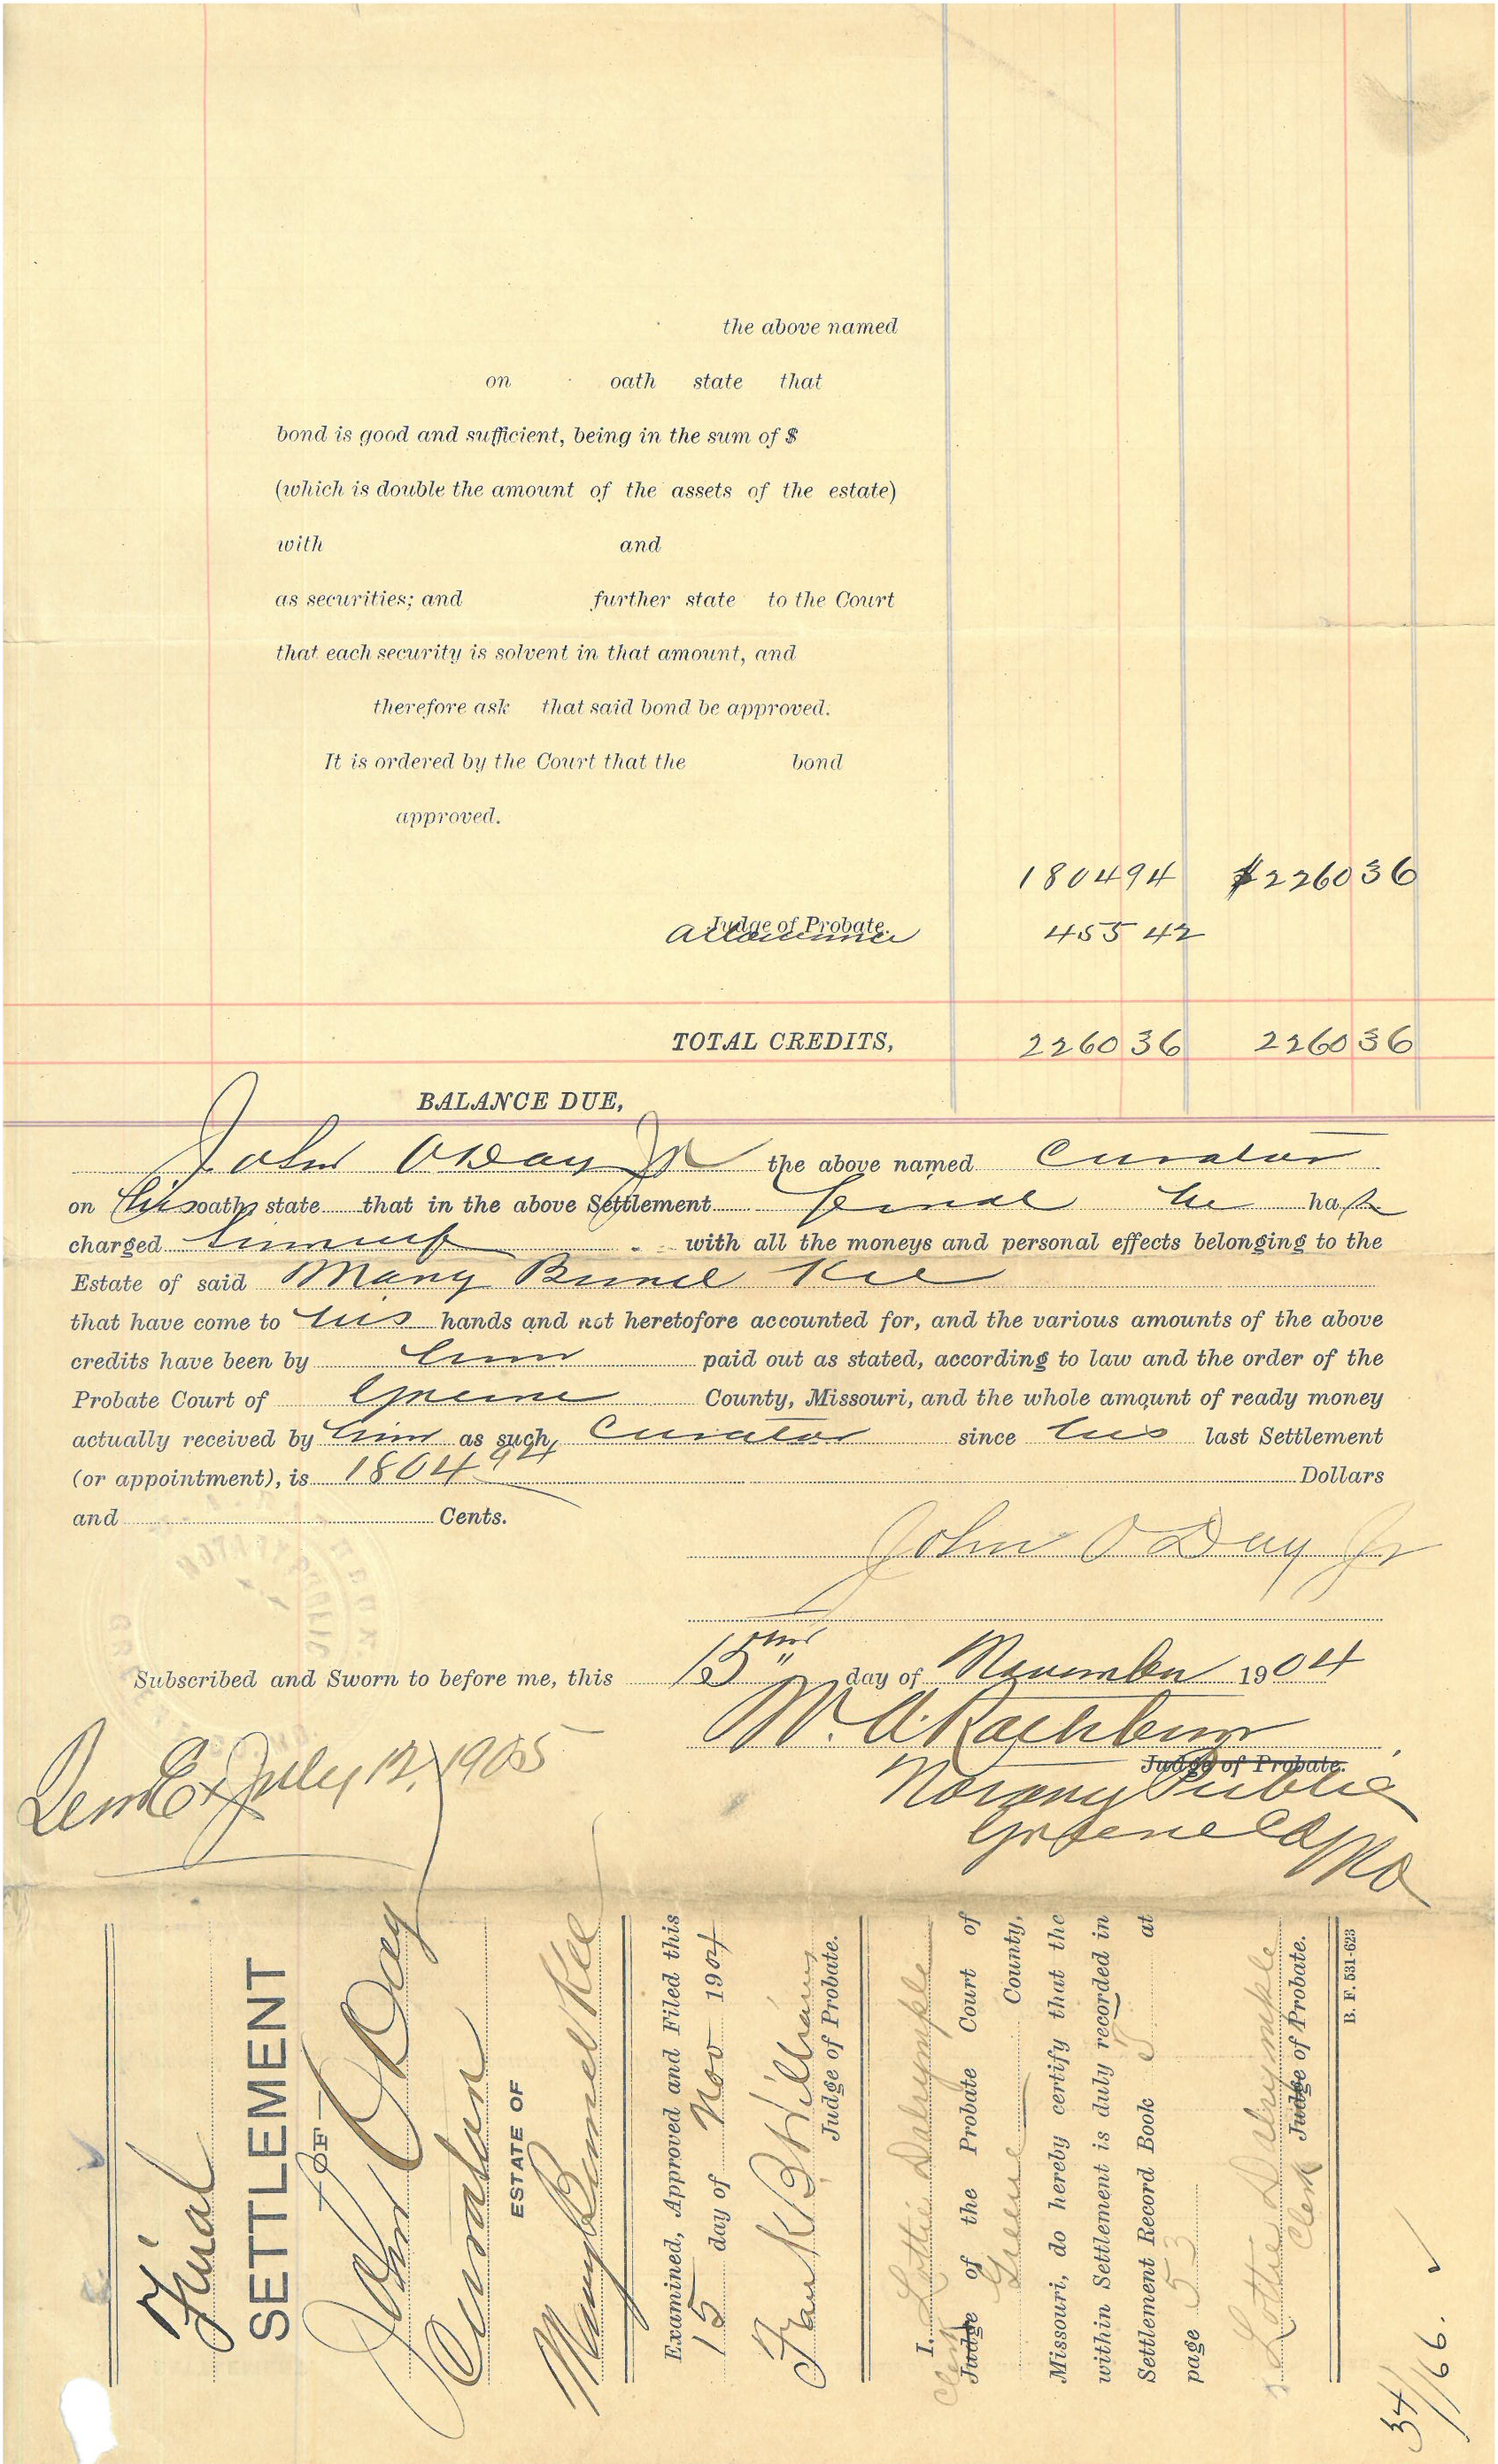 the above named
on oath state that
bond is good and sufficient, being in the sum of $
(which is double the amount of the assets of the estate)
with and
as securities; and further state to the Court
that each security is solvent in that amount, and
therefore ask that said bond be approved.
It is ordered by the Court that the bond
approved.
1804 94 $2260 36
Judge of Probate.
455 42
TOTAL CREDITS, 2260 36 2260 36
BALANCE DUE,
John O'Day Jr the above named Curator
on his oath state that in the above Settlement final he has
charged himself with all the moneys and personal effects belonging to the
Estate of said Mary Bunel Kee
that have come to his hands and not heretofore accounted for, and the various amounts of the above
credits have been by him paid out as stated, according to law and the order of the
Probate Court of Greene County, Missouri, and the whole amount of ready money
actually received by him as such, Curator since his last Settlement
(or appointment), is 1804 94 Dollars
and Cents.
John O'Day Jr
Subscribed and Sworn to before me, this 15" day of November 1904
M. A. Rathbun
Judge of Probate.
Notary Public
Greene Co Mo
Term Ex July 12, 1905
Final
SETTLEMENT
—OF—
John O'Day
Curator
ESTATE OF
Mary Bunel Kee
Examined, Approved and Filed this
15 day of Nov 1904
Frank B. Williams
Judge of Probate.
I, Lottie Dalrymple
Clerk
Judge of the Probate Court of
Greene County,
Missouri, do hereby certify that the
within Settlement is duly recorded in
Settlement Record Book at
page 53
Lottie Dalrymple
Judge of Probate.
Clerk
B. F. 531-623
34/166.